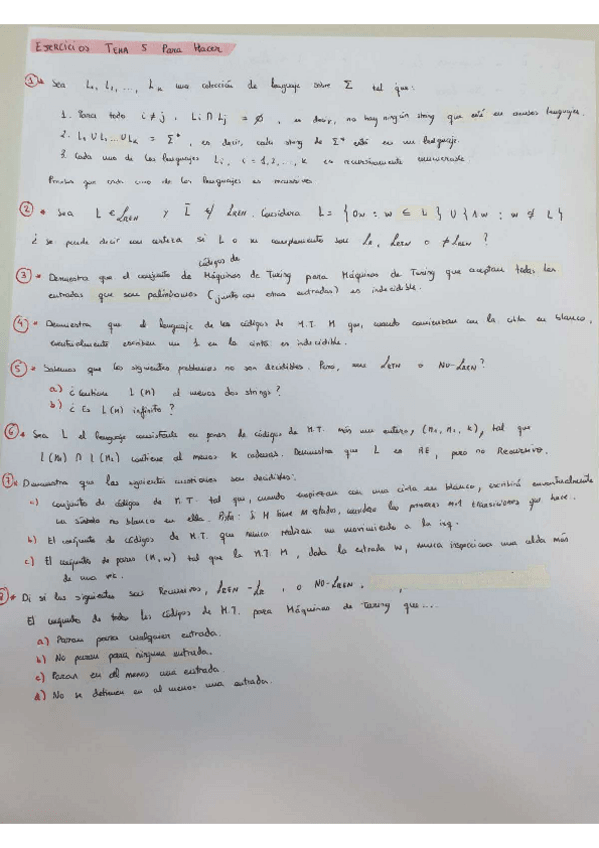 Ejercicios Tema 5 Para Hacer
1. Sea L₁, L₂, ..., Lₖ una colección de lenguajes sobre Σ tal que:
1. Para todo i ≠ j, Li ∩ Lj = ∅, es decir, no hay ningún string que esté en ambos lenguajes.
2. L₁ ∪ L₂ ... ∪ Lₖ = Σ*, es decir, cada string de Σ* está en un lenguaje.
3. Cada uno de los lenguajes Li, i = 1,2,..., k es recursivamente enumerable.
Prueba que cada uno de los lenguajes es recursivo.
2. Sea L ∈ LREN y L̄ ∉ LREN. Considera L = { 0w : w ∈ L } ∪ { 1w : w ∉ L }
¿ se puede decir con certeza si L o su complemento son LR, LREN o ≠ LREN ?
códigos de
3. Demuestra que el conjunto de Máquinas de Turing para Máquinas de Turing que aceptan todas las
entradas que son palíndromos (junto con otras entradas) es indecidible.
4. Demuestra que el lenguaje de los códigos de M.T. M que, cuando comienzan con la cinta en blanco,
eventualmente escriben un 1 en la cinta es indecidible.
5. Sabemos que los siguientes problemas no son decidibles. Pero, son LREN o NO-LREN?
a) ¿Contiene L(M) al menos dos strings?
b) ¿Es L(M) infinito?
6. Sea L el lenguaje consistente en pares de códigos de M.T. más un entero, (M₁, M₂, k), tal que
L(M₁) ∩ L(M₂) contiene al menos k cadenas. Demuestra que L es RE, pero no Recursivo.
7. Demuestra que las siguientes cuestiones son decidibles:
a) conjunto de códigos de M.T. tal que, cuando empiezan con una cinta en blanco, escribirá eventualmente
un símbolo no blanco en ella. Pista: Si M tiene M estados, considera las primeras M+1 transiciones que hace.
b) El conjunto de códigos de M.T. que nunca realizan un movimiento a la izq.
c) El conjunto de pares (M,w) tal que la M.T. M, dada la entrada w, nunca inspecciona una celda más
de una vez.
8. Di si las siguientes son Recursivos, LREN - LR, o NO-LREN.
El conjunto de todos los códigos de M.T. para Máquinas de Turing que...
a) Paran para cualquier entrada.
b) No paran para ninguna entrada.
c) Paran en al menos una entrada.
d) No se detienen en al menos una entrada.